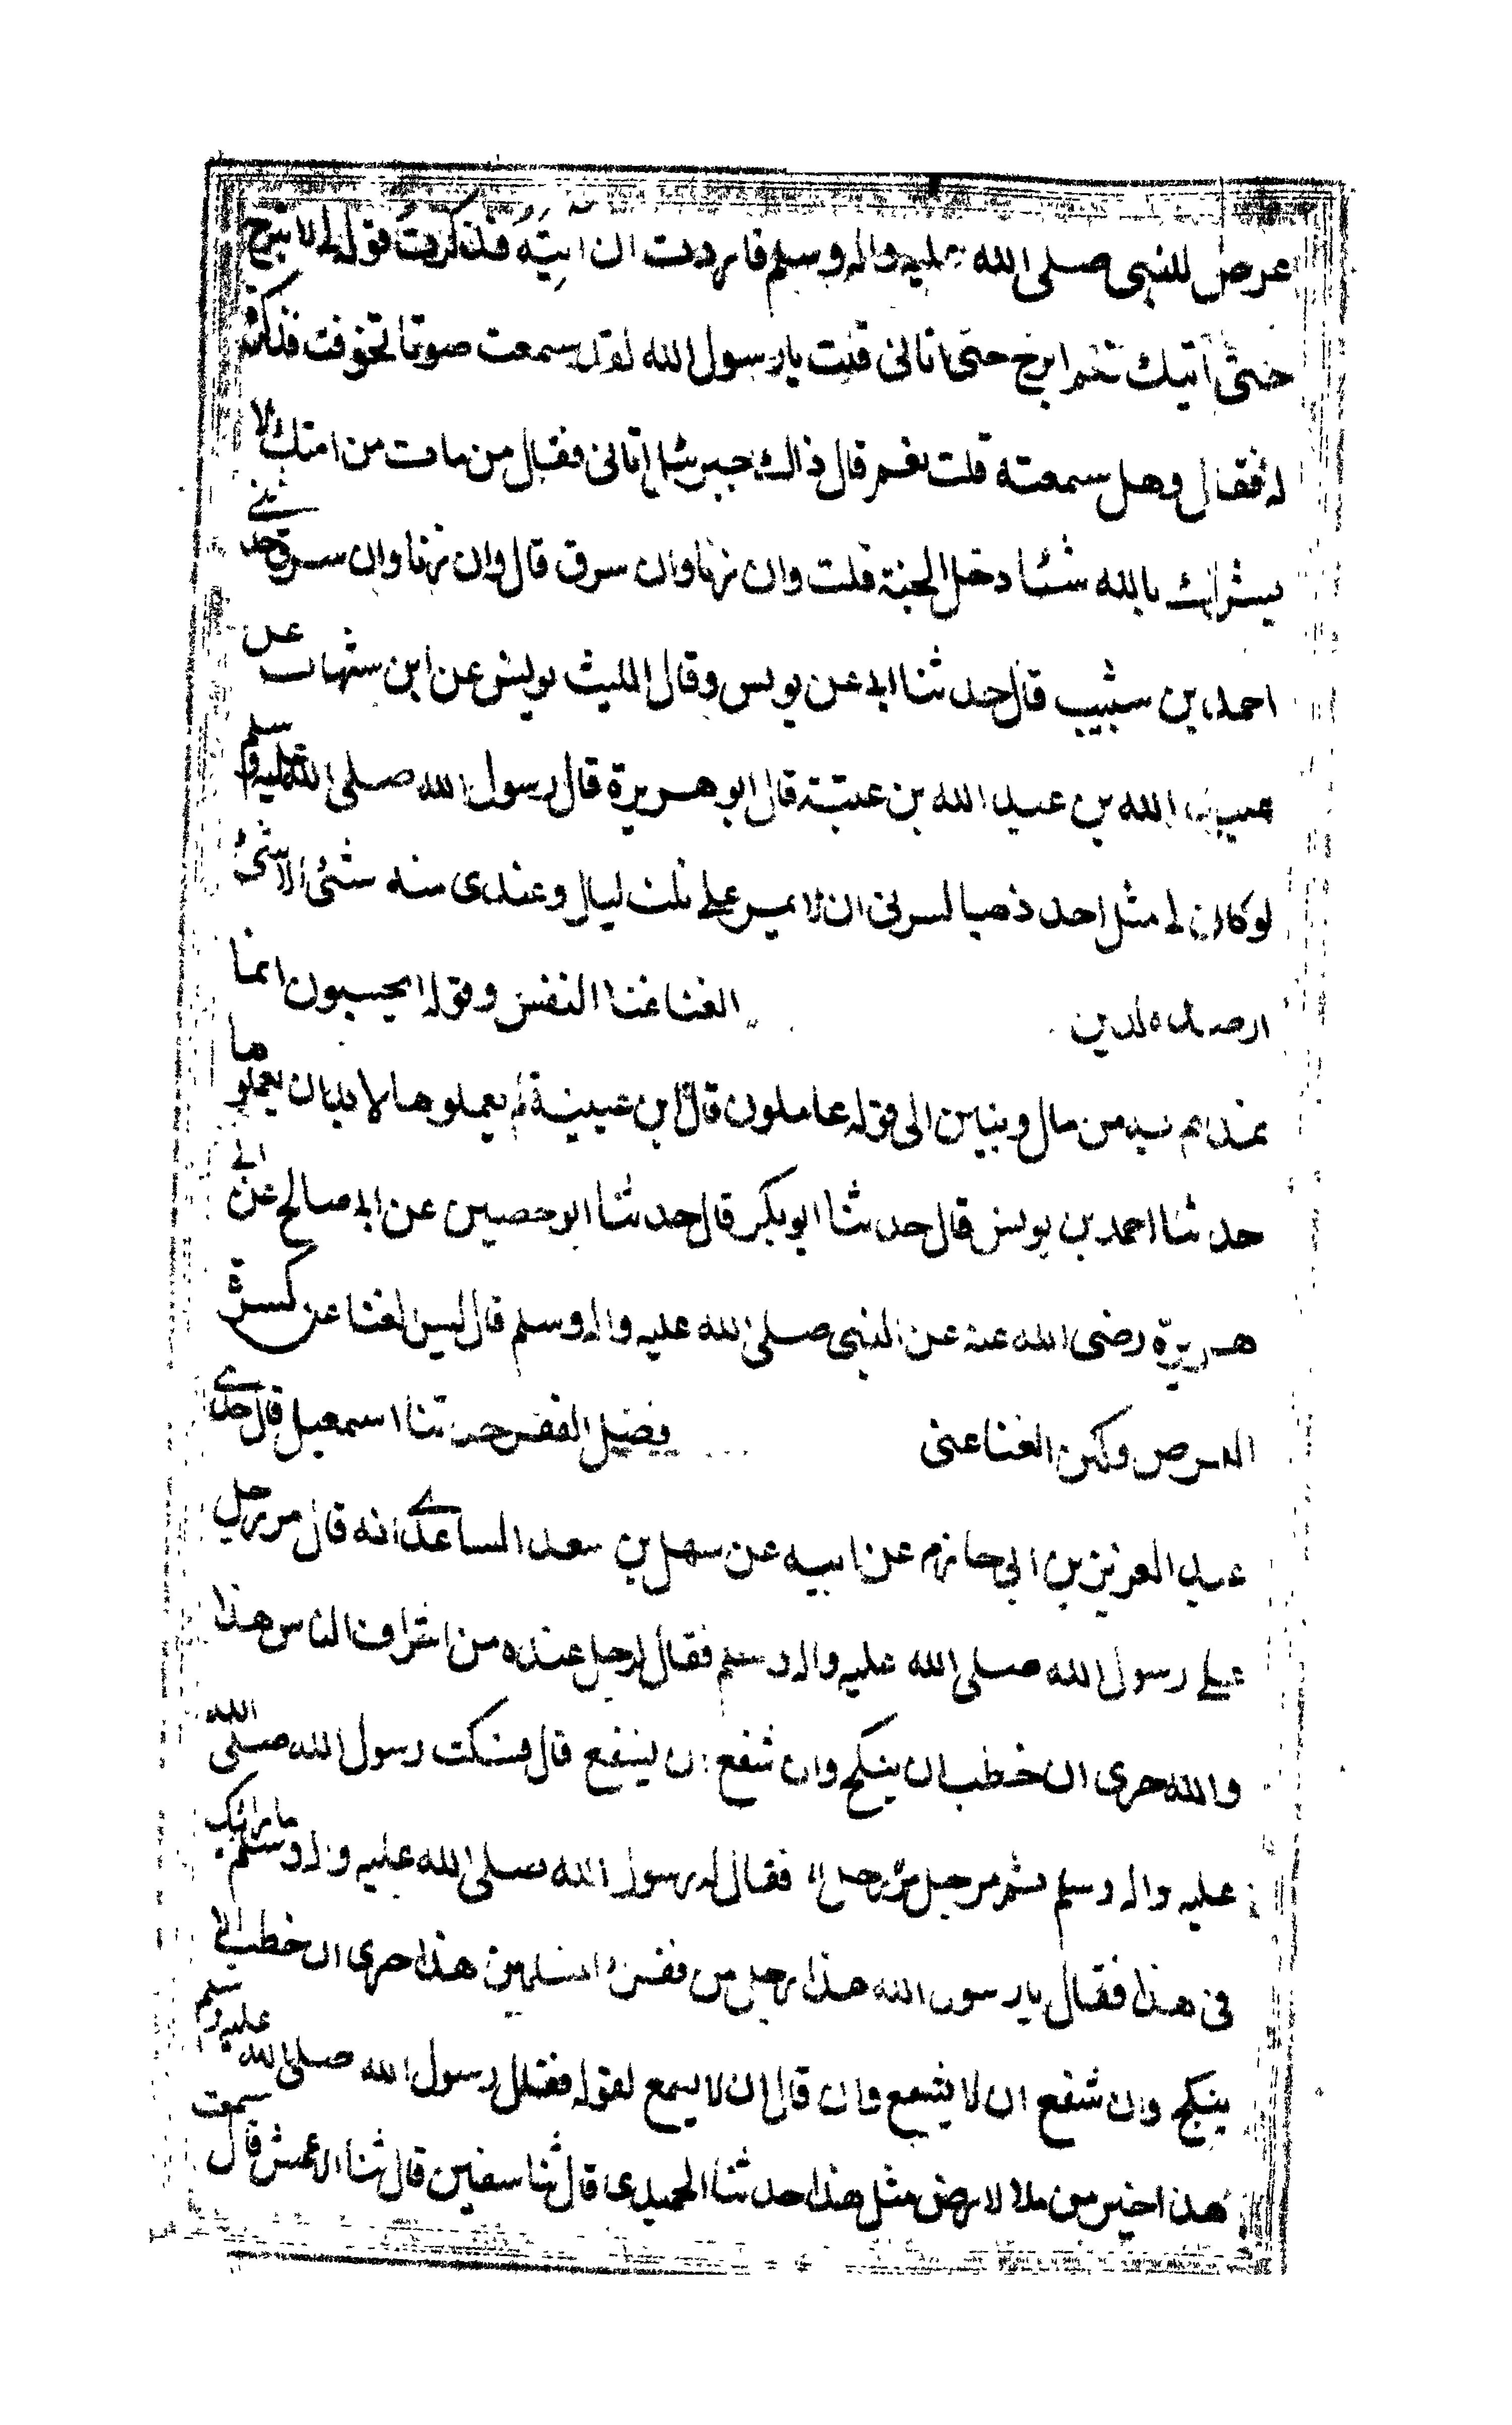 عرض للنبى صلى الله عليه واله وسلم فاردت ان اتيه فذكرت قوله لى لا تبرح
حتى آتيك فلم ابرح حتى اتانى قلت يا رسول الله لقد سمعت صوتا تخوفت فذكرت
له فقال وهل سمعته قلت نعم قال ذاك جبرئيل اتانى فقال من مات من امتك لا
يشرك بالله شيئا دخل الجنة قلت وان زنا وان سرق قال وان زنا وان سرق حدثنى
احمد بن شبيب قال حدثنا ابى عن يونس وقال الليث يونس عن ابن شهاب عن
عبيد الله بن عبد الله بن عتبة قال ابو هريرة قال رسول الله صلى الله عليه وسلم
لو كان لى مثل احد ذهبا لسرنى ان لا يمر على ثلث ليال وعندى منه شئ الا شئ
ارصده لدين الغنا غنا النفس وقوله ايحسبون انما
نمدهم به من مال وبنين الى قوله عاملون قال ابن عيينة لم يعملوها لا بد ان يعملوها
حدثنا احمد بن يونس قال حدثنا ابو بكر قال حدثنا ابو حصين عن ابى صالح عن ابى
هريرة رضى الله عنه عن النبى صلى الله عليه واله وسلم قال ليس الغنا عن كثرة
العرض ولكن الغنا غنى فضل الفقر حدثنا اسمعيل قال حدثنى
عبد العزيز بن ابى حازم عن ابيه عن سهل بن سعد الساعدى انه قال مر رجل
على رسول الله صلى الله عليه واله وسلم فقال لرجل عنده من اشراف الناس هذا
والله حرى ان خطب ان ينكح وان شفع ان يشفع قال فسكت رسول الله صلى الله
عليه واله وسلم ثم مر رجل فقال له رسول الله صلى الله عليه واله وسلم ما رائك
فى هذا فقال يا رسول الله هذا رجل من فقراء المسلمين هذا حرى ان خطب ان لا
ينكح وان شفع ان لا يشفع وان قال ان لا يسمع لقوله فقال رسول الله صلى الله عليه وسلم
هذا خير من ملا الارض مثل هذا حدثنا الحميدى قال ثنا سفين قال ثنا الاعمش قال سمعت